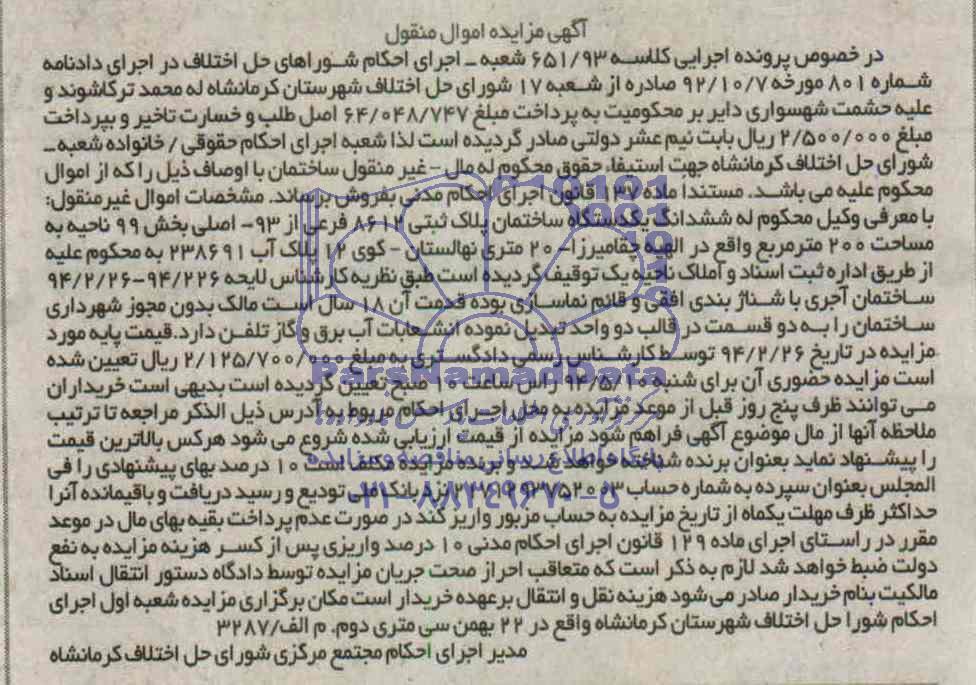 آگهی مزایده اموال منقول
در خصوص پرونده اجرایی کلاسه ۶۵۱/۹۳ شعبه ـ اجرای احکام شوراهای حل اختلاف در اجرای دادنامه
شماره ۸۰۱ مورخه ۹۲/۱۰/۷ صادره از شعبه ۱۷ شورای حل اختلاف شهرستان کرمانشاه له محمد ترکاشوند و
علیه حشمت شهسواری دایر بر محکومیت به پرداخت مبلغ ۶۴/۰۴۸/۷۴۷ اصل طلب و خسارت تاخیر و بپرداخت
مبلغ ۲/۵۰۰/۰۰۰ ریال بابت نیم عشر دولتی صادر گردیده است لذا شعبه اجرای احکام حقوقی / خانواده شعبه ـ
شورای حل اختلاف کرمانشاه جهت استیفاء حقوق محکوم له مال - غیر منقول ساختمان با اوصاف ذیل را که از اموال
محکوم علیه می باشد. مستندا ماده ۱۳۷ قانون اجرای احکام مدنی بفروش برساند. مشخصات اموال غیرمنقول:
با معرفی وکیل محکوم له ششدانگ یکدستگاه ساختمان پلاک ثبتی ۸۶۱۲ فرعی از ۹۳- اصلی بخش ۹۹ ناحیه به
مساحت ۲۰۰ مترمربع واقع در الهیه چقامیرزا- ۲۰ متری نهالستان - کوی ۱۲ پلاک آب ۲۳۸۶۹۱ به محکوم علیه
از طریق اداره ثبت اسناد و املاک ناحیه یک توقیف گردیده است طبق نظریه کارشناس لایحه ۹۴/۲۲۶-۹۴/۲/۲۶
ساختمان آجری با شناژ بندی افقی و قائم نماسازی بوده قدمت آن ۱۸ سال است مالک بدون مجوز شهرداری
ساختمان را به دو قسمت در قالب دو واحد تبدیل نموده انشعابات آب برق و گاز تلفن دارد.قیمت پایه مورد
مزایده در تاریخ ۹۴/۲/۲۶ توسط کارشناس رسمی دادگستری به مبلغ ۲/۱۲۵/۷۰۰/۰۰۰ ریال تعیین شده
است مزایده حضوری آن برای شنبه ۹۴/۵/۱۰ راس ساعت ۱۰ صبح تعیین گردیده است بدیهی است خریداران
می توانند ظرف پنج روز قبل از موعد مزایده به محل اجرای احکام مربوط به آدرس ذیل الذکر مراجعه تا ترتیب
ملاحظه آنها از مال موضوع آگهی فراهم شود مزایده از قیمت ارزیابی شده شروع می شود هرکس بالاترین قیمت
را پیشنهاد نماید بعنوان برنده شناخته خواهد شد و برنده مزایده مکلف است ۱۰ درصد بهای پیشنهادی را فی
المجلس بعنوان سپرده به شماره حساب نزد بانک ملی تودیع و رسید دریافت و باقیمانده آنرا
حداکثر ظرف مهلت یکماه از تاریخ مزایده به حساب مزبور واریز کند در صورت عدم پرداخت بقیه بهای مال در موعد
مقرر در راستای اجرای ماده ۱۲۹ قانون اجرای احکام مدنی ۱۰ درصد واریزی پس از کسر هزینه مزایده به نفع
دولت ضبط خواهد شد لازم به ذکر است که متعاقب احراز صحت جریان مزایده توسط دادگاه دستور انتقال اسناد
مالکیت بنام خریدار صادر می شود هزینه نقل و انتقال برعهده خریدار است مکان برگزاری مزایده شعبه اول اجرای
احکام شورا حل اختلاف شهرستان کرمانشاه واقع در ۲۲ بهمن سی متری دوم. م الف/۳۲۸۷
مدیر اجرای احکام مجتمع مرکزی شورای حل اختلاف کرمانشاه
ParsNamadData
پایگاه اطلاع رسانی مناقصه و مزایده
۰۲۱-۸۸۳۴۹۶۷۰-۵